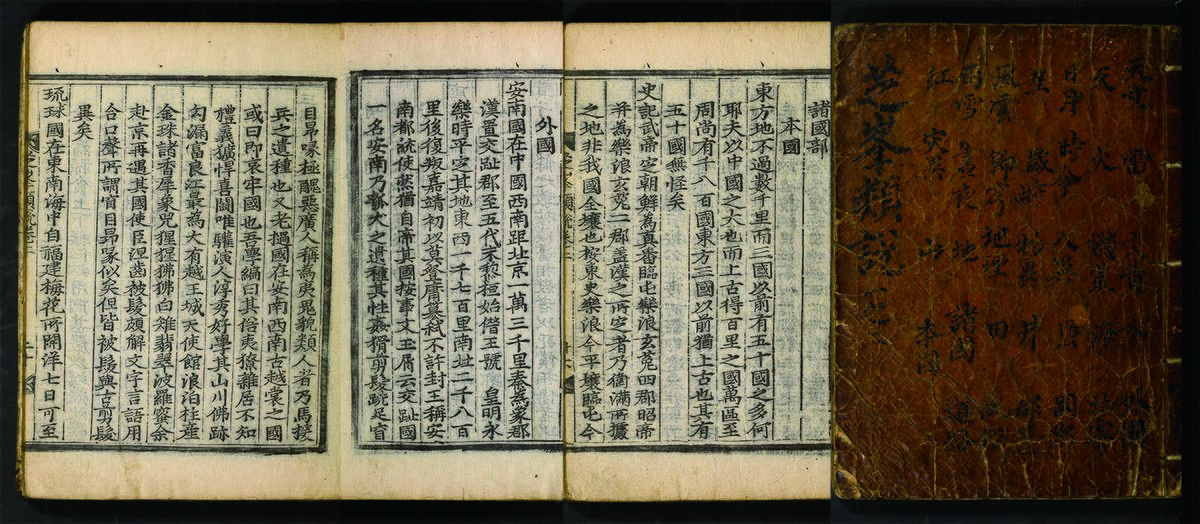 芝峯類說
風雲 地理 田
諸國
虹 灾異 山 本國
諸國部
本國
東方地不過數千里而三國以前有五十國之多何
耶夫以中國之大也而上古得百里之國萬區至
周尚有千八百國東方三國以前猶上古也其有
五十國無怪矣
史記武帝定朝鮮為真番臨屯樂浪玄菟四郡昭帝
并為樂浪玄菟二郡盖漢之所定者乃衛滿所據
之地非我國全壤也按東史樂浪今平壤臨屯今
外國
安南國在中國西南距北京一萬三千里秦為象郡
漢置交趾郡至五代末黎桓始僭王號 皇明永
樂時平定其地東西一千七百里南北二千八百
里後復叛嘉靖初以莫登庸簒弑不許封王稱安
南都統使然猶自帝其國按事文玉屑云交趾國
一名安南乃瓠犬之遺種其性姦猾剪髮跣足窅
目昂喙極醜惡廣人稱為夷鬼貌類人者乃馬援
兵之遺種也又老撾國在安南西南古越裳之國
或曰即哀牢國也吾學編曰其俗夷獠雜居不知
禮義獷悍喜鬪唯驩演人淳秀好學其山川佛跡
勾漏富良江最為大有越王城天使館浪泊柱産
金珠諸香犀象兕猩猩狒狒白雉翡翠波羅蜜余
赴京再遇其國使臣涅齒被髮頗解文字言語用
合口聲所謂窅目昂喙似矣但皆被髮與古剪髮
異矣
琉球國在東南海中自福建梅花所開洋七日可至
芝峯類說卷二